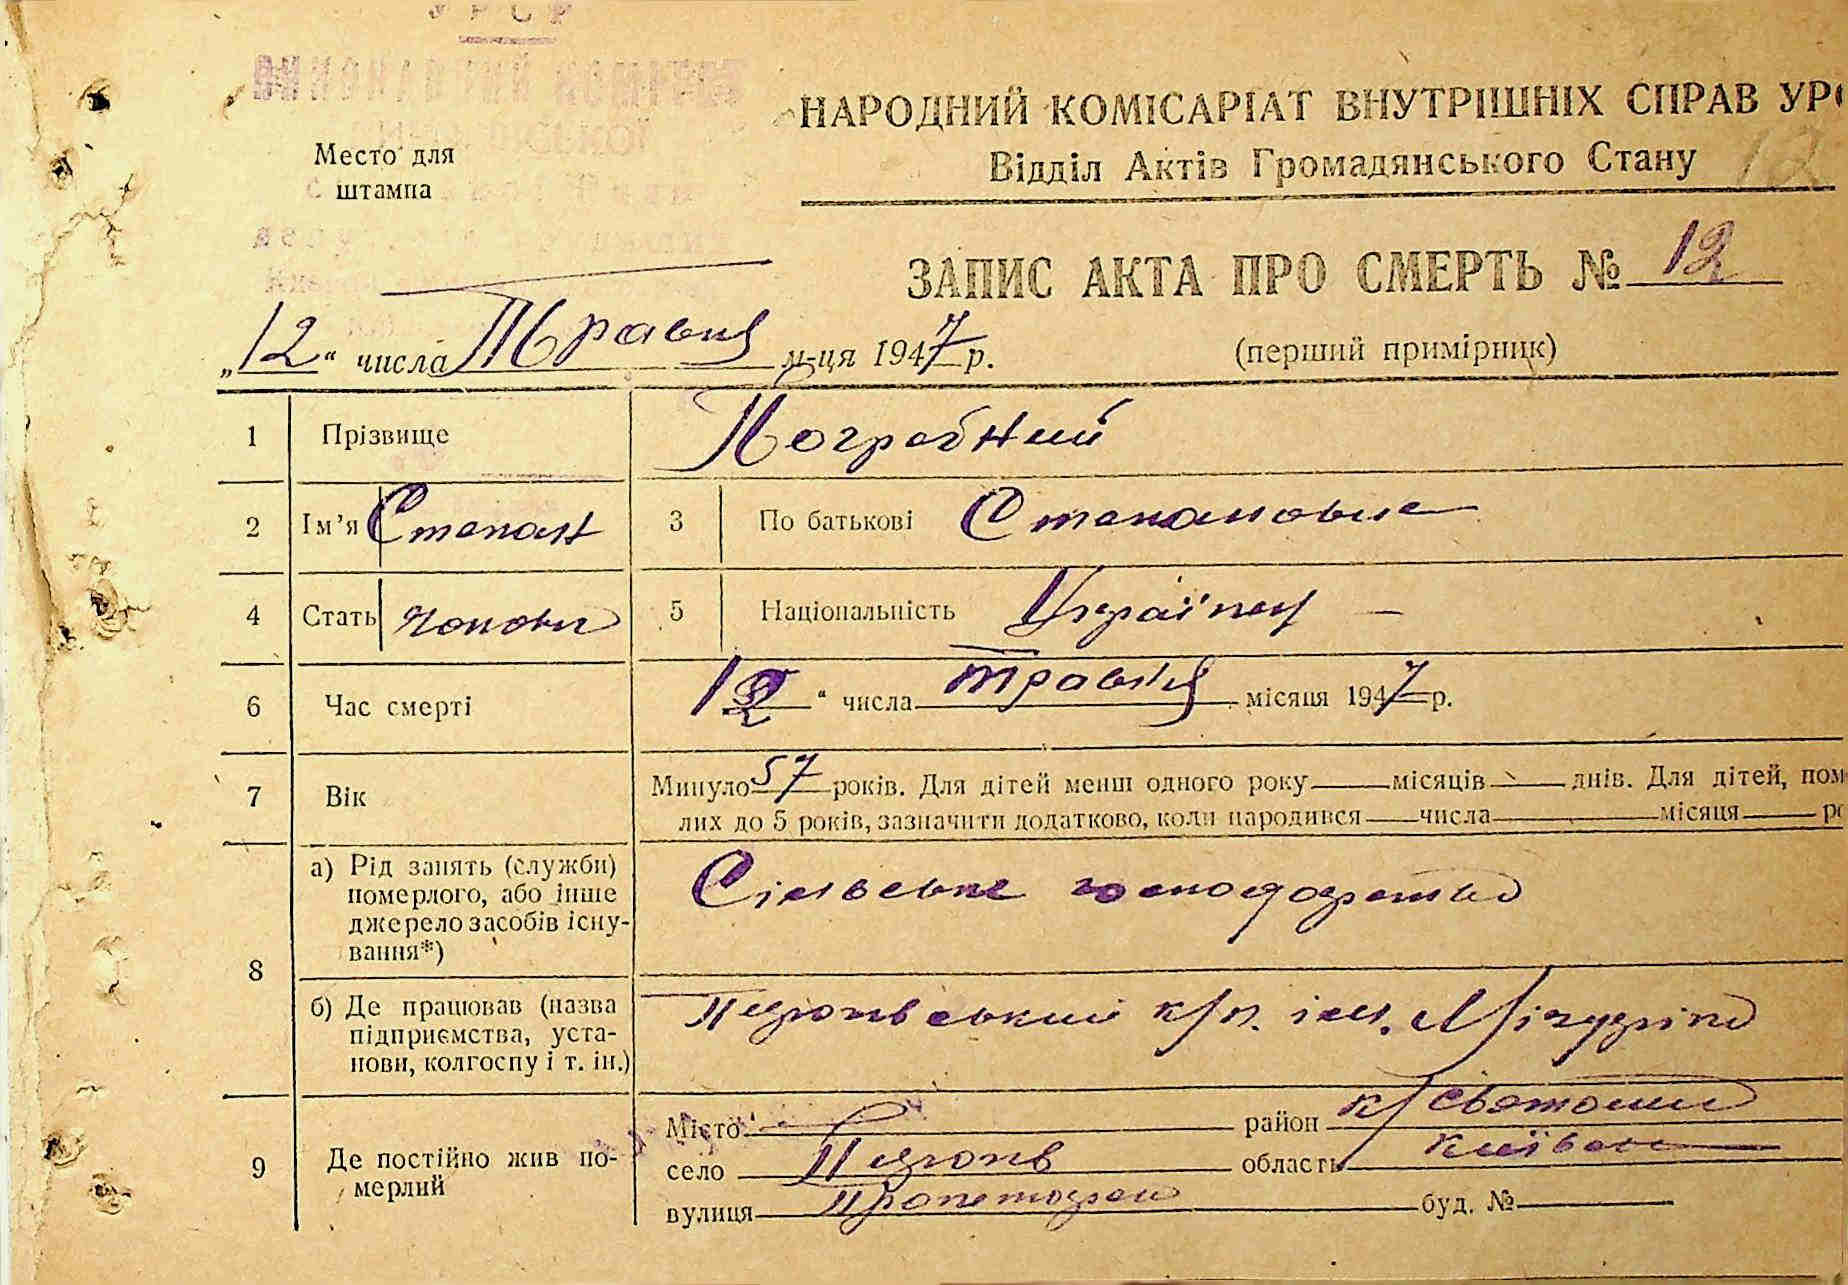 УРСР
Место для
штампа
НАРОДНИЙ КОМІСАРІАТ ВНУТРІШНІХ СПРАВ УРС
Відділ Актів Громадянського Стану
12
ЗАПИС АКТА ПРО СМЕРТЬ № 12
„12“ числа Травня м-ця 1947 р.
(перший примірник)
1 Прізвище Погребний
2 Ім’я Степан 3 По батькові Степанович
4 Стать чолови 5 Національність Українец —
6 Час смерті 12 “ числа травня місяця 1947 р.
7 Вік Минуло 57 років. Для дітей менш одного року місяців днів. Для дітей, пом
лих до 5 років, зазначити додатково, коли народився числа місяця ро
8 а) Рід занять (служби)
померлого, або інше
джерело засобів існу-
вання*)
Сільське господарство
б) Де працював (назва
підприємства, уста-
нови, колгоспу і т. ін.)
к/г. ім. Мічуріна
9 Де постійно жив по-
мерлий
Місто район к/Святошин
село область Київск
вулиця буд. №